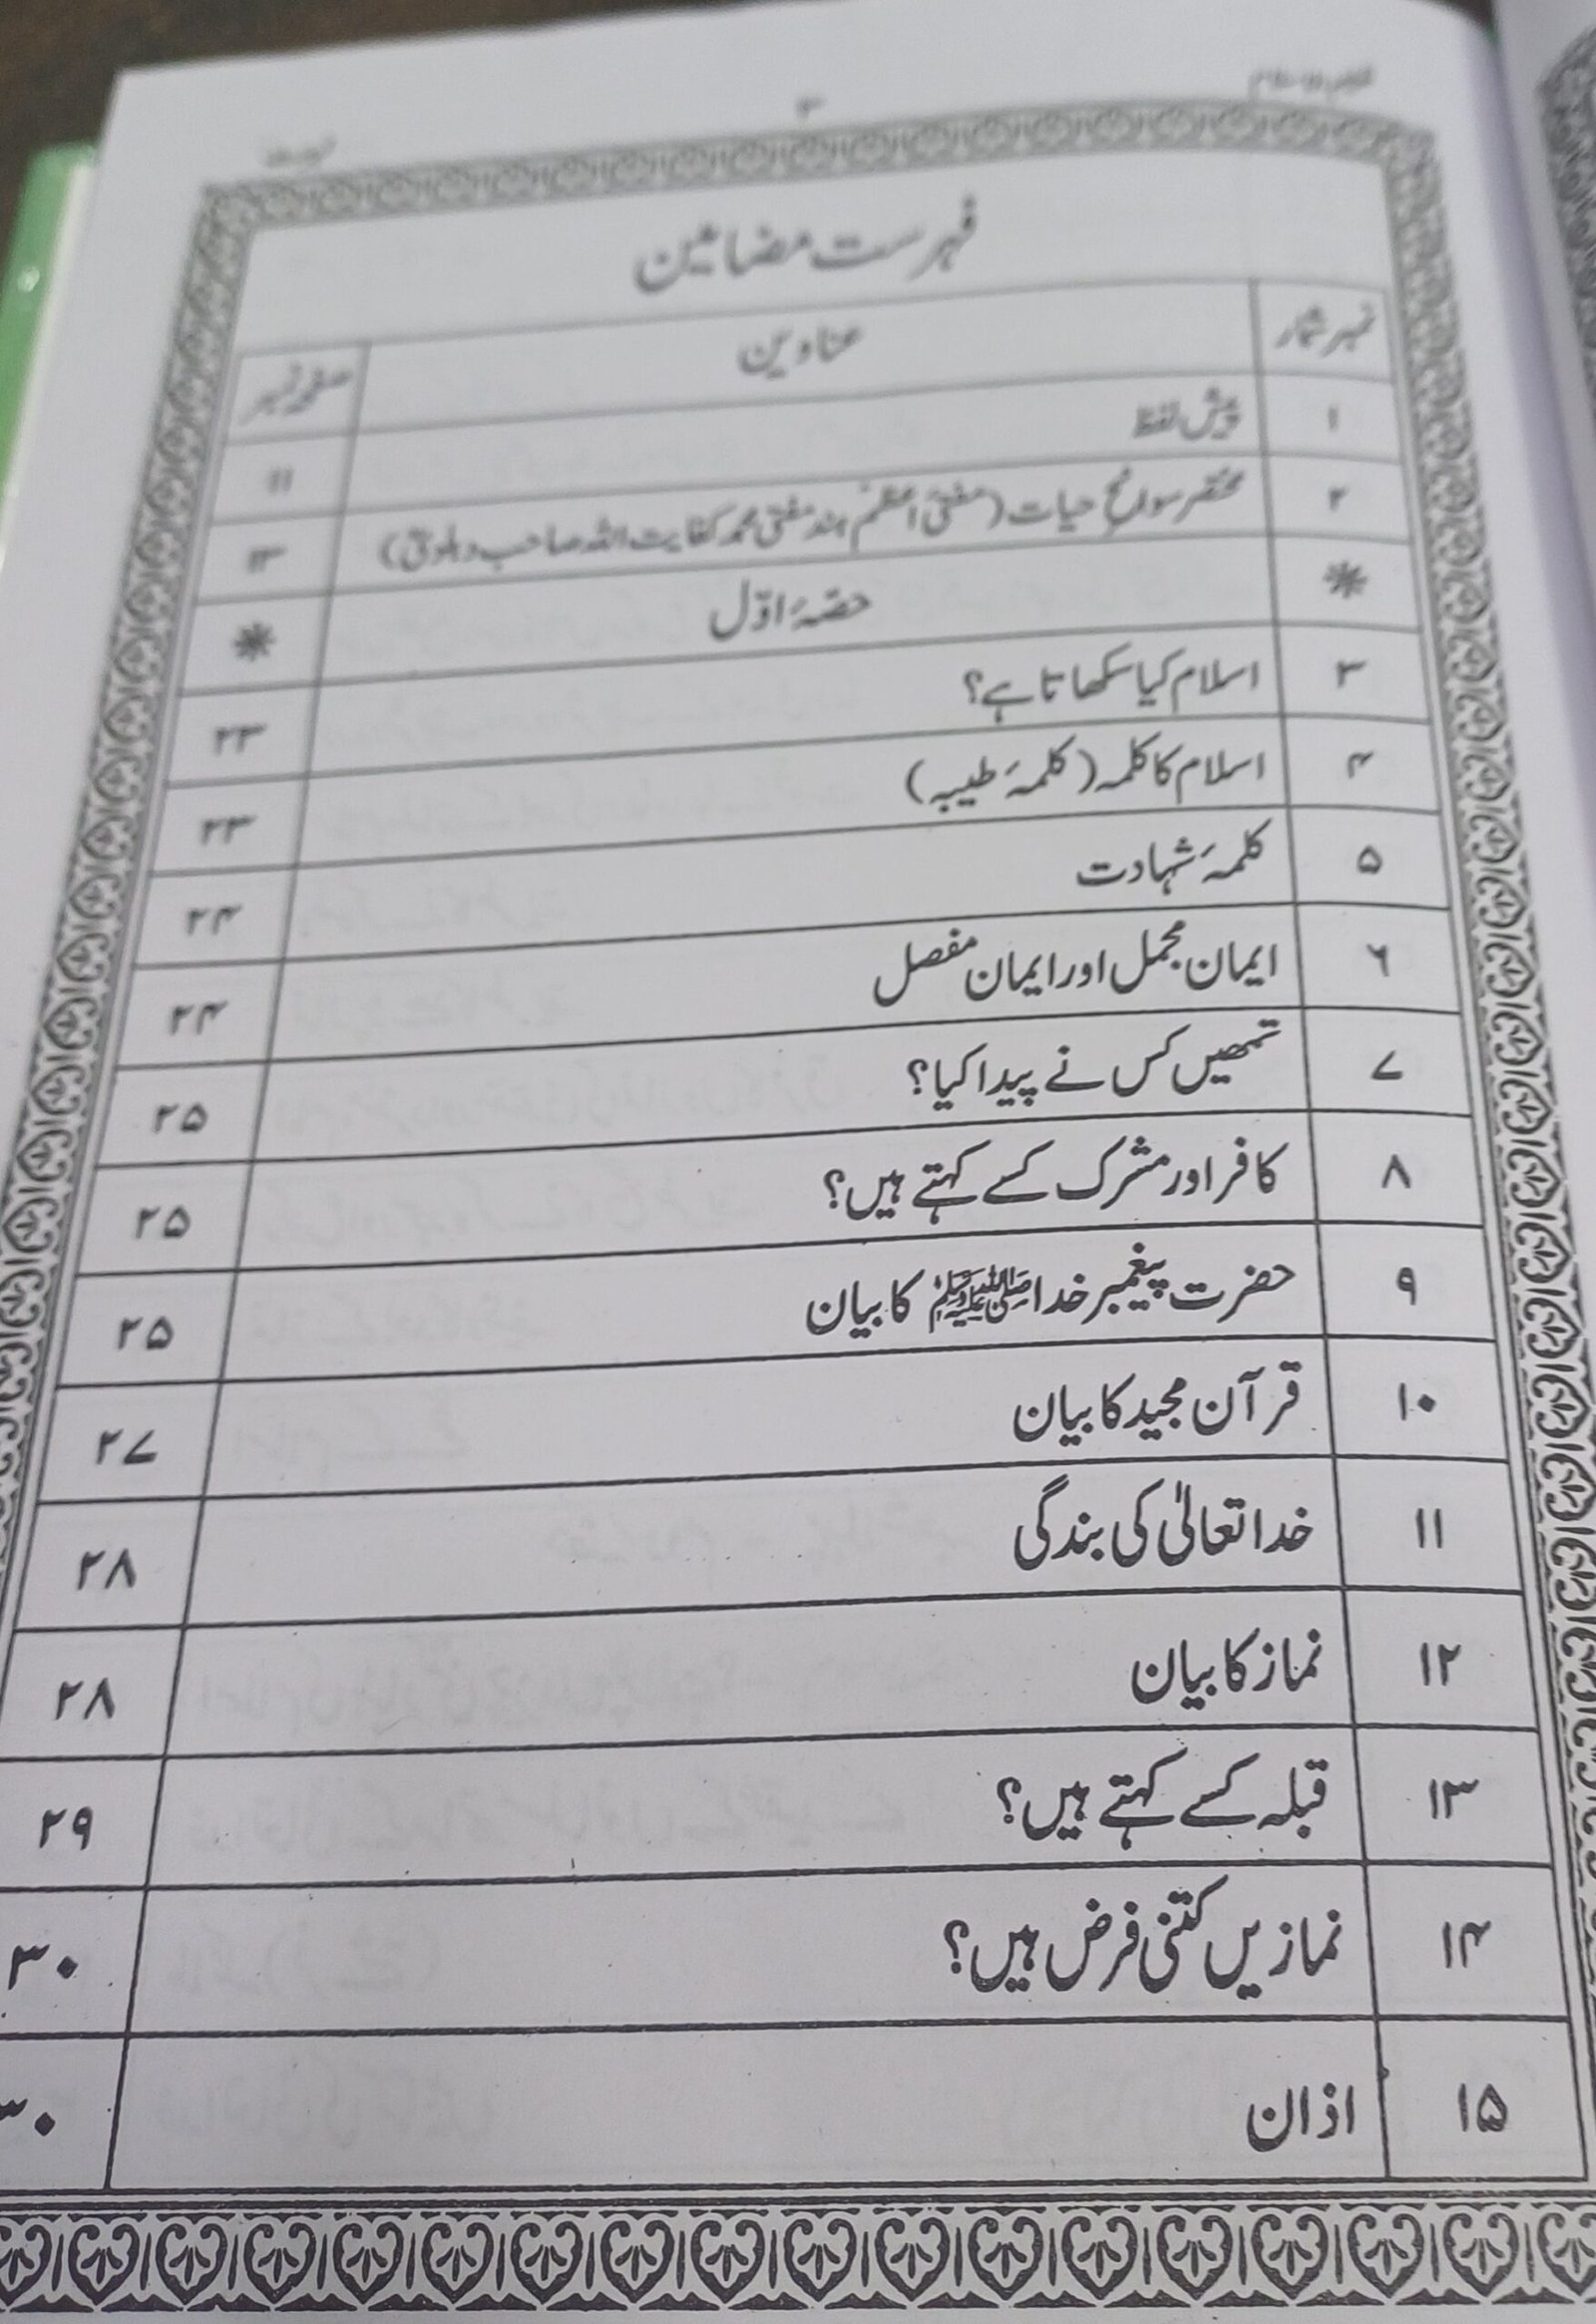 ۳
فہرست مضامین
نمبر شمار عناوین صفحہ نمبر
۱ پیش لفظ ۱۱
۲ مختصر سوانح حیات (مفتی اعظم ہند مفتی محمد کفایت اللہ صاحب دہلویؒ) ۱۳
* حصّہٴ اوّل *
۳ اسلام کیا سکھاتا ہے؟ ۲۳
۴ اسلام کا کلمہ (کلمہٴ طیبہ) ۲۳
۵ کلمہٴ شہادت ۲۴
۶ ایمان مجمل اور ایمان مفصل ۲۴
۷ تمھیں کس نے پیدا کیا؟ ۲۵
۸ کافر اور مشرک کسے کہتے ہیں؟ ۲۵
۹ حضرت پیغمبر خدا ﷺ کا بیان ۲۵
۱۰ قرآن مجید کا بیان ۲۷
۱۱ خدا تعالیٰ کی بندگی ۲۸
۱۲ نماز کا بیان ۲۸
۱۳ قبلہ کسے کہتے ہیں؟ ۲۹
۱۴ نمازیں کتنی فرض ہیں؟ ۳۰
۱۵ اذان ۳۰